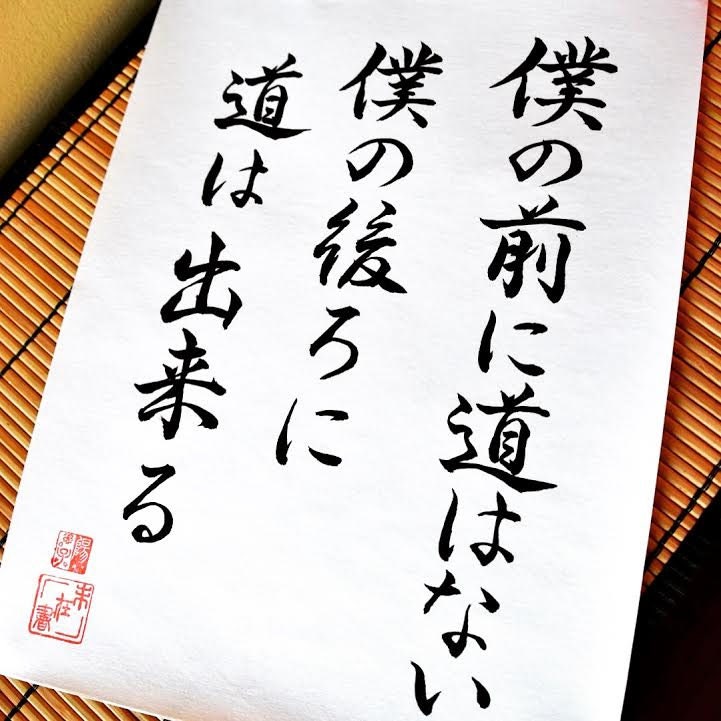 僕の前に道はない
僕の後ろに
道は出来る